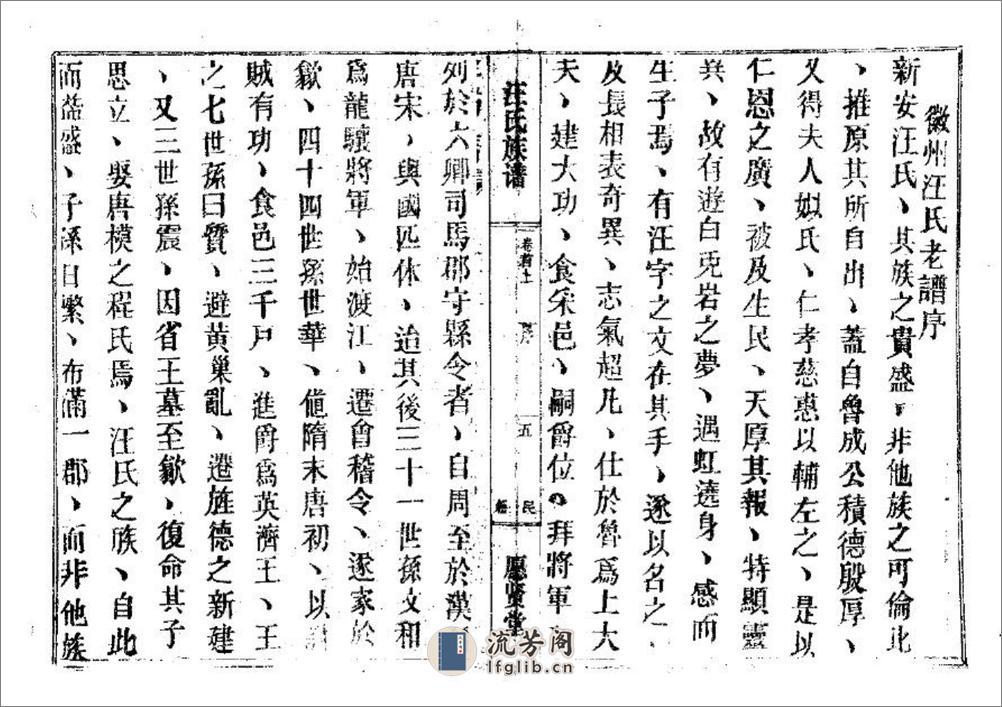 徽州汪氏老譜序
新安汪氏、其族之貴盛、非他族之可倫比
、推原其所自出、蓋自魯成公積德殷厚、
又得夫人姒氏、仁孝慈惠以輔左之、是以
仁恩之廣、被及生民、天厚其報、特顯靈
異、故有遊白兎岩之夢、遇虹遶身、感而
生子焉、有汪字之文在其手、遂以名之、
及長相表奇異、志氣超凡、仕於魯爲上大
夫、建大功、食采邑、嗣爵位。拜將軍、
汪氏族谱
卷首上
序
五
民
愿贤堂
列於六卿司馬郡守縣令者、自周至於漢、
唐宋、與國匹休、迨其後三十一世孫文和
爲龍驤將軍、始渡江、遷會稽令、遂家於
歙、四十四世孫世華、値隋末唐初、以討
賊有功、食邑三千戶、進爵爲英濟王、王
之七世孫曰質、避黄巢亂、遷旌德之新建
、又三世孫震、因省王墓至歙、復命其子
思立、娶唐模之程氏焉、汪氏之族、自此
而益盛、子孫日繁、布滿一郡、而非他族
流芳阁
lfglib.cn